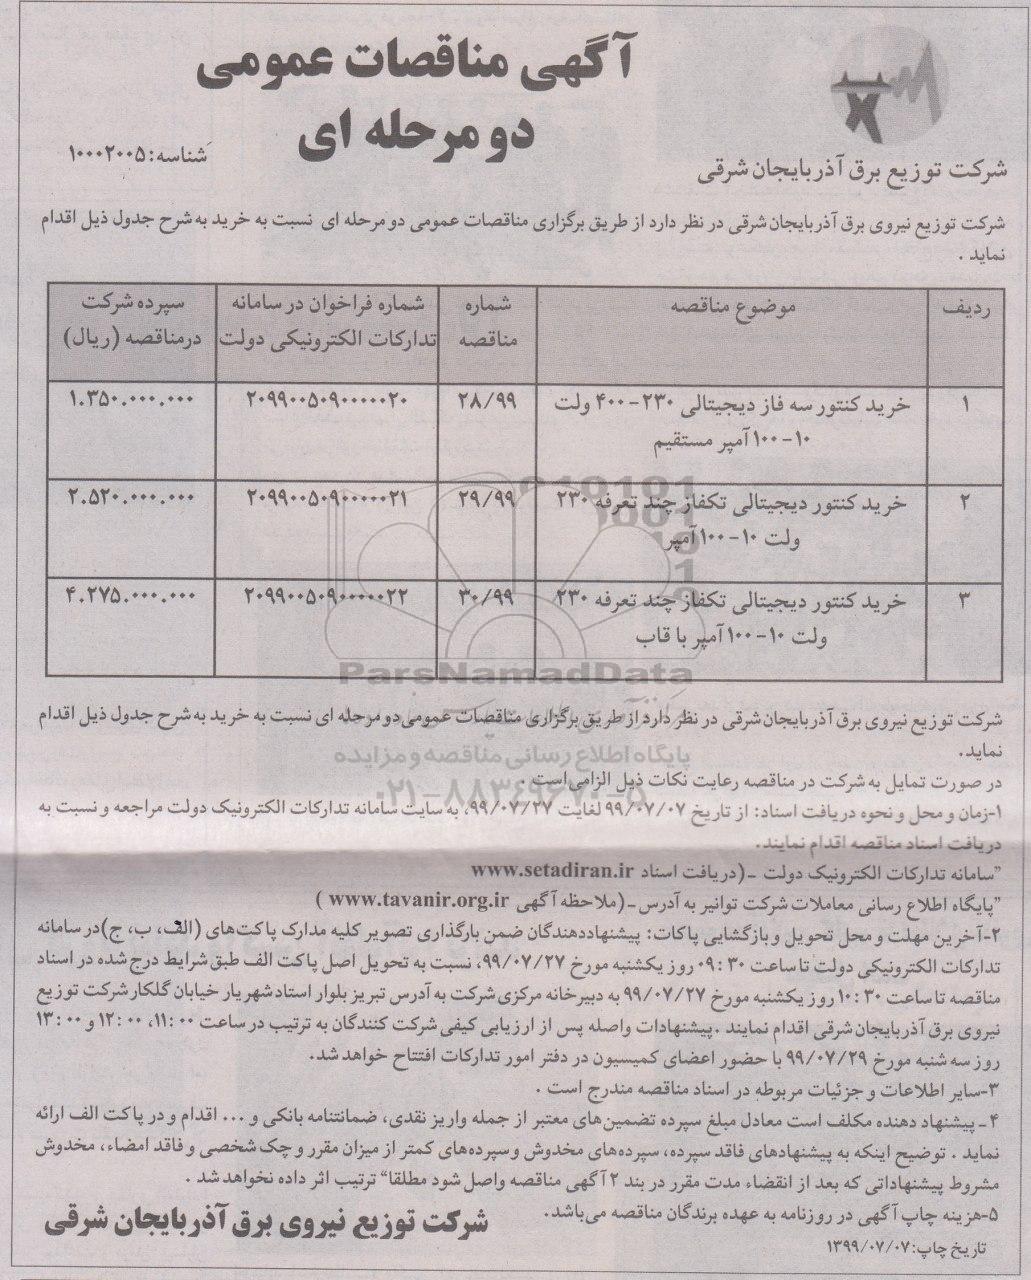 آگهی مناقصات عمومی
دو مرحله ای
شناسه: ۱۰۰۰۲۰۰۵
شرکت توزیع برق آذربایجان شرقی
شرکت توزیع نیروی برق آذربایجان شرقی در نظر دارد از طریق برگزاری مناقصات عمومی دو مرحله ای نسبت به خرید به شرح جدول ذیل اقدام
نماید .
ردیف	موضوع مناقصه	شماره	شماره فراخوان در سامانه	سپرده شرکت
مناقصه	تدارکات الکترونیکی دولت	در مناقصه (ریال)
۱	خرید کنتور سه فاز دیجیتالی ۲۳۰-۴۰۰ ولت	۲۸/۹۹	۲۰۹۹۰۰۵۰۹۰۰۰۰۰۲۰	۱.۳۵۰.۰۰۰.۰۰۰
۱۰-۱۰۰ آمپر مستقیم
۲	خرید کنتور دیجیتالی تکفاز چند تعرفه ۲۳۰	۲۹/۹۹	۲۰۹۹۰۰۵۰۹۰۰۰۰۰۲۱	۲.۵۲۰.۰۰۰.۰۰۰
ولت ۱۰-۱۰۰ آمپر
۳	خرید کنتور دیجیتالی تکفاز چند تعرفه ۲۳۰	۳۰/۹۹	۲۰۹۹۰۰۵۰۹۰۰۰۰۰۲۲	۴.۲۷۵.۰۰۰.۰۰۰
ولت ۱۰-۱۰۰ آمپر با قاب
ParsNamadData
شرکت توزیع نیروی برق آذربایجان شرقی در نظر دارد از طریق برگزاری مناقصات عمومی دو مرحله ای نسبت به خرید به شرح جدول ذیل اقدام
نماید.
پایگاه اطلاع رسانی مناقصه و مزایده
در صورت تمایل به شرکت در مناقصه رعایت نکات ذیل الزامی است .
۰۲۱-۸۸۳۴۹۶۷۰-۵
۱-زمان و محل و نحوه دریافت اسناد: از تاریخ ۹۹/۰۷/۰۷ لغایت ۹۹/۰۷/۲۷، به سایت سامانه تدارکات الکترونیک دولت مراجعه و نسبت به
دریافت اسناد مناقصه اقدام نمایند.
"سامانه تدارکات الکترونیک دولت -(دریافت اسناد www.setadiran.ir
"پایگاه اطلاع رسانی معاملات شرکت توانیر به آدرس-(ملاحظه آگهی www.tavanir.org.ir )
۲-آخرین مهلت و محل تحویل و بازگشایی پاکات: پیشنهاددهندگان ضمن بارگذاری تصویر کلیه مدارک پاکت‌های (الف، ب، ج)در سامانه
تدارکات الکترونیکی دولت تا ساعت ۰۹:۳۰ روز یکشنبه مورخ ۹۹/۰۷/۲۷، نسبت به تحویل اصل پاکت الف طبق شرایط درج شده در اسناد
مناقصه تا ساعت ۱۰:۳۰ روز یکشنبه مورخ ۹۹/۰۷/۲۷ به دبیرخانه مرکزی شرکت به آدرس تبریز بلوار استاد شهریار خیابان گلکار شرکت توزیع
نیروی برق آذربایجان شرقی اقدام نمایند .پیشنهادات واصله پس از ارزیابی کیفی شرکت کنندگان به ترتیب در ساعت ۱۱:۰۰، ۱۲:۰۰ و ۱۳:۰۰
روز سه شنبه مورخ ۹۹/۰۷/۲۹ با حضور اعضای کمیسیون در دفتر امور تدارکات افتتاح خواهد شد.
۳-سایر اطلاعات و جزئیات مربوطه در اسناد مناقصه مندرج است .
۴-پیشنهاد دهنده مکلف است معادل مبلغ سپرده تضمین‌های معتبر از جمله واریز نقدی، ضمانتنامه بانکی و ... اقدام و در پاکت الف ارائه
نماید . توضیح اینکه به پیشنهادهای فاقد سپرده، سپرده‌های مخدوش و سپرده‌های کمتر از میزان مقرر و چک شخصی و فاقد امضاء، مخدوش
مشروط پیشنهاداتی که بعد از انقضاء مدت مقرر در بند ۲ آگهی مناقصه واصل شود مطلقا" ترتیب اثر داده نخواهد شد .
۵-هزینه چاپ آگهی در روزنامه به عهده برندگان مناقصه می‌باشد.
شرکت توزیع نیروی برق آذربایجان شرقی
تاریخ چاپ: ۱۳۹۹/۰۷/۰۷